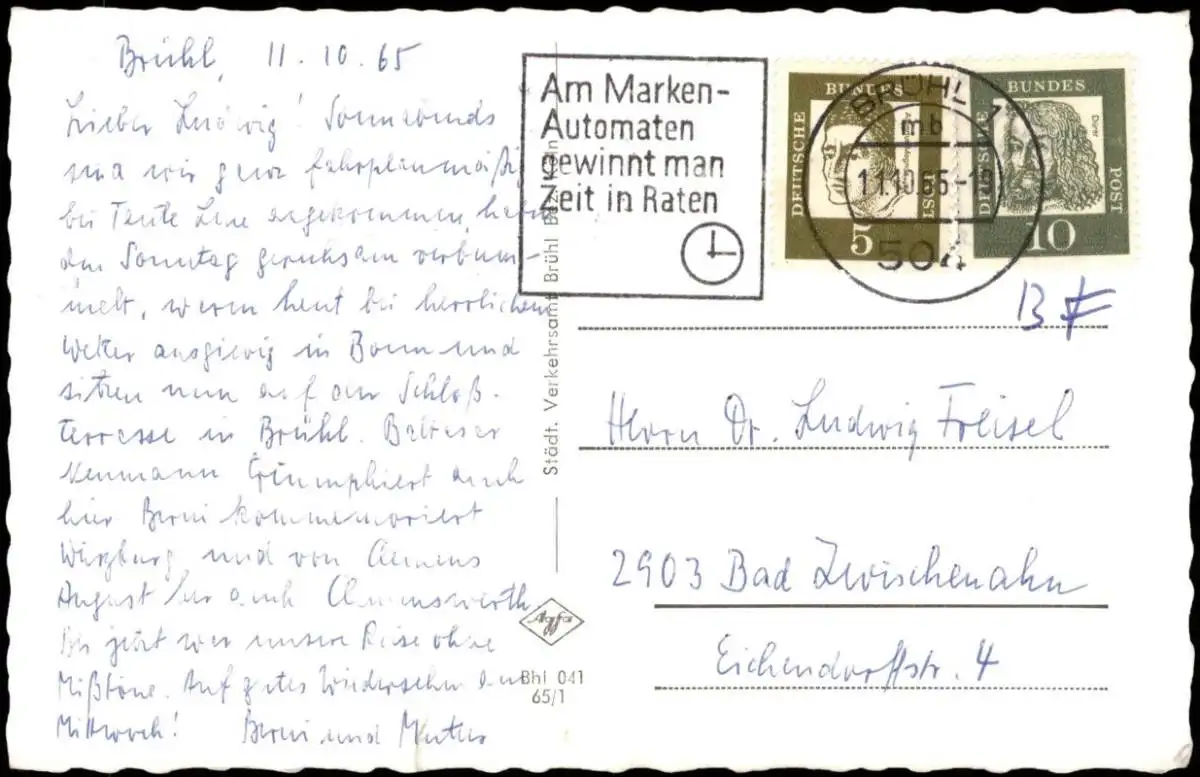 Brühl, 11.10.65
Lieber Ludwig! Sonnabends
sind wir ganz fahrplanmäßig
bei Tante Lene angekommen, haben
den Sonntag geruhsam verbum-
melt, waren heut bei herrlichem
Wetter ausgiebig in Bonn und
sitzen nun auf der Schloß-
terrasse in Brühl. Baltasar
Neumann triumphiert auch
hier. Berni kommemoriert
Würzburg und von Clemens
August her auch Clemenswerth
Bis jetzt war unsere Reise ohne
Mißtöne. Auf gutes Wiedersehn am
Mittwoch! Berni und Mutter
Am Marken-
Automaten
gewinnt man
Zeit in Raten
BRÜHL 1
mb
11.10.65-18
504
DEUTSCHE BUNDESPOST
5
DEUTSCHE BUNDES POST
Dürer
10
13 F
Städt. Verkehrsamt Brühl Bez. Köln
Herrn Dr. Ludwig Freisel
2903 Bad Zwischenahn
Eichendorffstr. 4
Agfa
Bhl 041
65/1